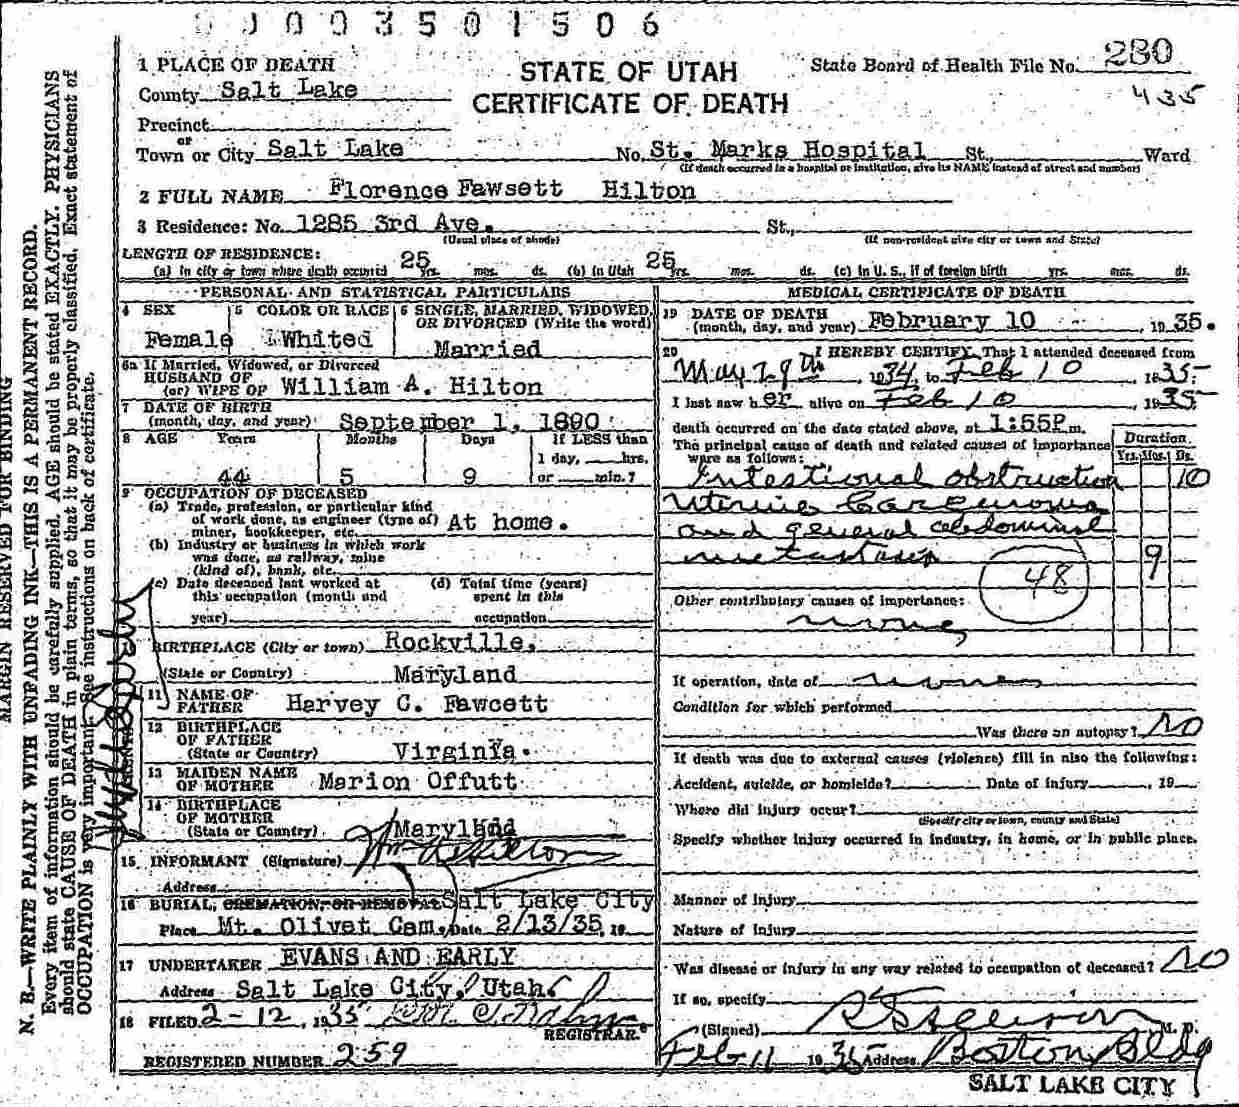 0003501506
1 PLACE OF DEATH
STATE OF UTAH
CERTIFICATE OF DEATH
State Board of Health File No. 280
435
County Salt Lake
Precinct
or
Town or City Salt Lake No. St. Marks Hospital St., Ward
(If death occurred in a hospital or institution, give its NAME instead of street and number)
2 FULL NAME Florence Fawsett Hilton
3 Residence: No. 1285 3rd Ave. St.,
(Usual place of abode) (If non-resident give city or town and State)
LENGTH OF RESIDENCE:
(a) In city or town where death occurred 25 yrs. mos. ds. (b) In Utah 25 yrs. mos. ds. (c) In U. S., if of foreign birth yrs. mos. ds.
PERSONAL AND STATISTICAL PARTICULARS
4 SEX
Female
5 COLOR OR RACE
Whited
6 SINGLE, MARRIED, WIDOWED, OR DIVORCED (Write the word)
Married
6a If Married, Widowed, or Divorced
HUSBAND OF
(or) WIFE OF William A. Hilton
7 DATE OF BIRTH
(month, day, and year) September 1, 1890
8 AGE Years Months Days If LESS than
1 day, hrs.
44 5 9 or min.?
9 OCCUPATION OF DECEASED
(a) Trade, profession, or particular kind
of work done, as engineer (type of)
miner, bookkeeper, etc. At home.
(b) Industry or business in which work
was done, as railway, mine
(kind of), bank, etc.
(c) Date deceased last worked at
this occupation (month and
year)
(d) Total time (years)
spent in this
occupation
BIRTHPLACE (City or town) Rockville,
(State or Country) Maryland
11 NAME OF
FATHER Harvey C. Fawcett
12 BIRTHPLACE
OF FATHER
(State or Country) Virginia.
13 MAIDEN NAME
OF MOTHER Marion Offutt
14 BIRTHPLACE
OF MOTHER
(State or Country) Maryland
15 INFORMANT (Signature) Wm A Hilton
Address
16 BURIAL, CREMATION, OR REMOVAL Salt Lake City
Place Mt. Olivet Cem. Date 2/13/35, 19
17 UNDERTAKER EVANS AND EARLY
Address Salt Lake City, Utah.
18 FILED 2-12, 1935
REGISTRAR.
REGISTERED NUMBER 259
MEDICAL CERTIFICATE OF DEATH
19 DATE OF DEATH
(month, day, and year) February 10 1935.
20 I HEREBY CERTIFY, That I attended deceased from
May 29th, 1934, to Feb 10, 1935
I last saw her alive on Feb 10, 1935
death occurred on the date stated above, at 1:55P m.
The principal cause of death and related causes of importance
were as follows:
Duration
Yrs. Mos. Ds.
Intestional obstruction 10
Uterine Carcinoma
and general abdominal
metastases 9
48
Other contributory causes of importance:
none
If operation, date of none
Condition for which performed
Was there an autopsy? No
If death was due to external causes (violence) fill in also the following:
Accident, suicide, or homicide? Date of injury , 19
Where did injury occur?
(Specify city or town, county and State)
Specify whether injury occurred in industry, in home, or in public place.
Manner of Injury
Nature of Injury
Was disease or injury in any way related to occupation of deceased? No
If so, specify
(Signed) M. D.
Feb 11 1935 Address Boston Bldg
SALT LAKE CITY
MARGIN RESERVED FOR BINDING
N. B.—WRITE PLAINLY WITH UNFADING INK—THIS IS A PERMANENT RECORD.
Every item of information should be carefully supplied. AGE should be stated EXACTLY. PHYSICIANS
should state CAUSE OF DEATH in plain terms, so that it may be properly classified. Exact statement of
OCCUPATION is very important. See instructions on back of certificate.